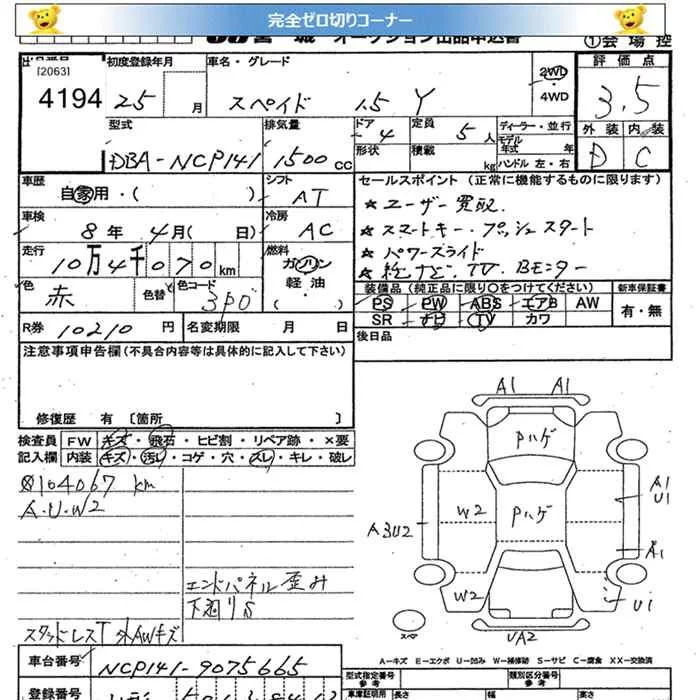 完全ゼロ切りコーナー
宮城 オークション出品申込書
①会場控
[2063]
4194
初度登録年月
25 月
車名・グレード
スペイド 1.5 Y
2WD
4WD
評価点
3.5
外装 内装
D C
型式
DBA-NCP141
排気量
1500 CC
ドア 4
形状
定員 5 人
積載 kg
ディーラー・並行
モデル年式 年
ハンドル 左・右
車歴
自家用・( )
シフト
AT
車検
8年 4月( 日)
冷房
AC
走行
10万4千070km
燃料
ガソリン
軽油
( )
色
赤
色替
色コード
3P0
R券 10210 円
名変期限 月 日
セールスポイント (正常に機能するものに限ります)
★ユーザー買取
★スマートキー・プッシュスタート
★パワースライド
装備品 (純正品に限り○をつけてください)
新車保証書
PS PW ABS エアB AW
SR ナビ TV カワ
有・無
後日品
注意事項申告欄 (不具合内容等は具体的に記入して下さい)
修復歴 有 〔箇所 〕
検査員 FW キズ・飛石・ヒビ割・リペア跡・×要
記入欄 内装 キズ・汚レ・コゲ・穴・スレ・キレ・破レ
104067 km
A.U.W2
エンドパネル歪み
下廻りS
スタッドレスT 外AWキズ
A1 A1
Pハゲ
Pハゲ
W2
A3U2
A1
U1
A1
W2
U1
UA2
スペア
A-キズ E-エクボ U-凹み W-補修跡 S-サビ C-腐食 XX-交換済
車台番号
NCP141-9075665
登録番号
型式指定番号
参考
類別区分番号
参考
車庫証明用
長さ
幅
高さ